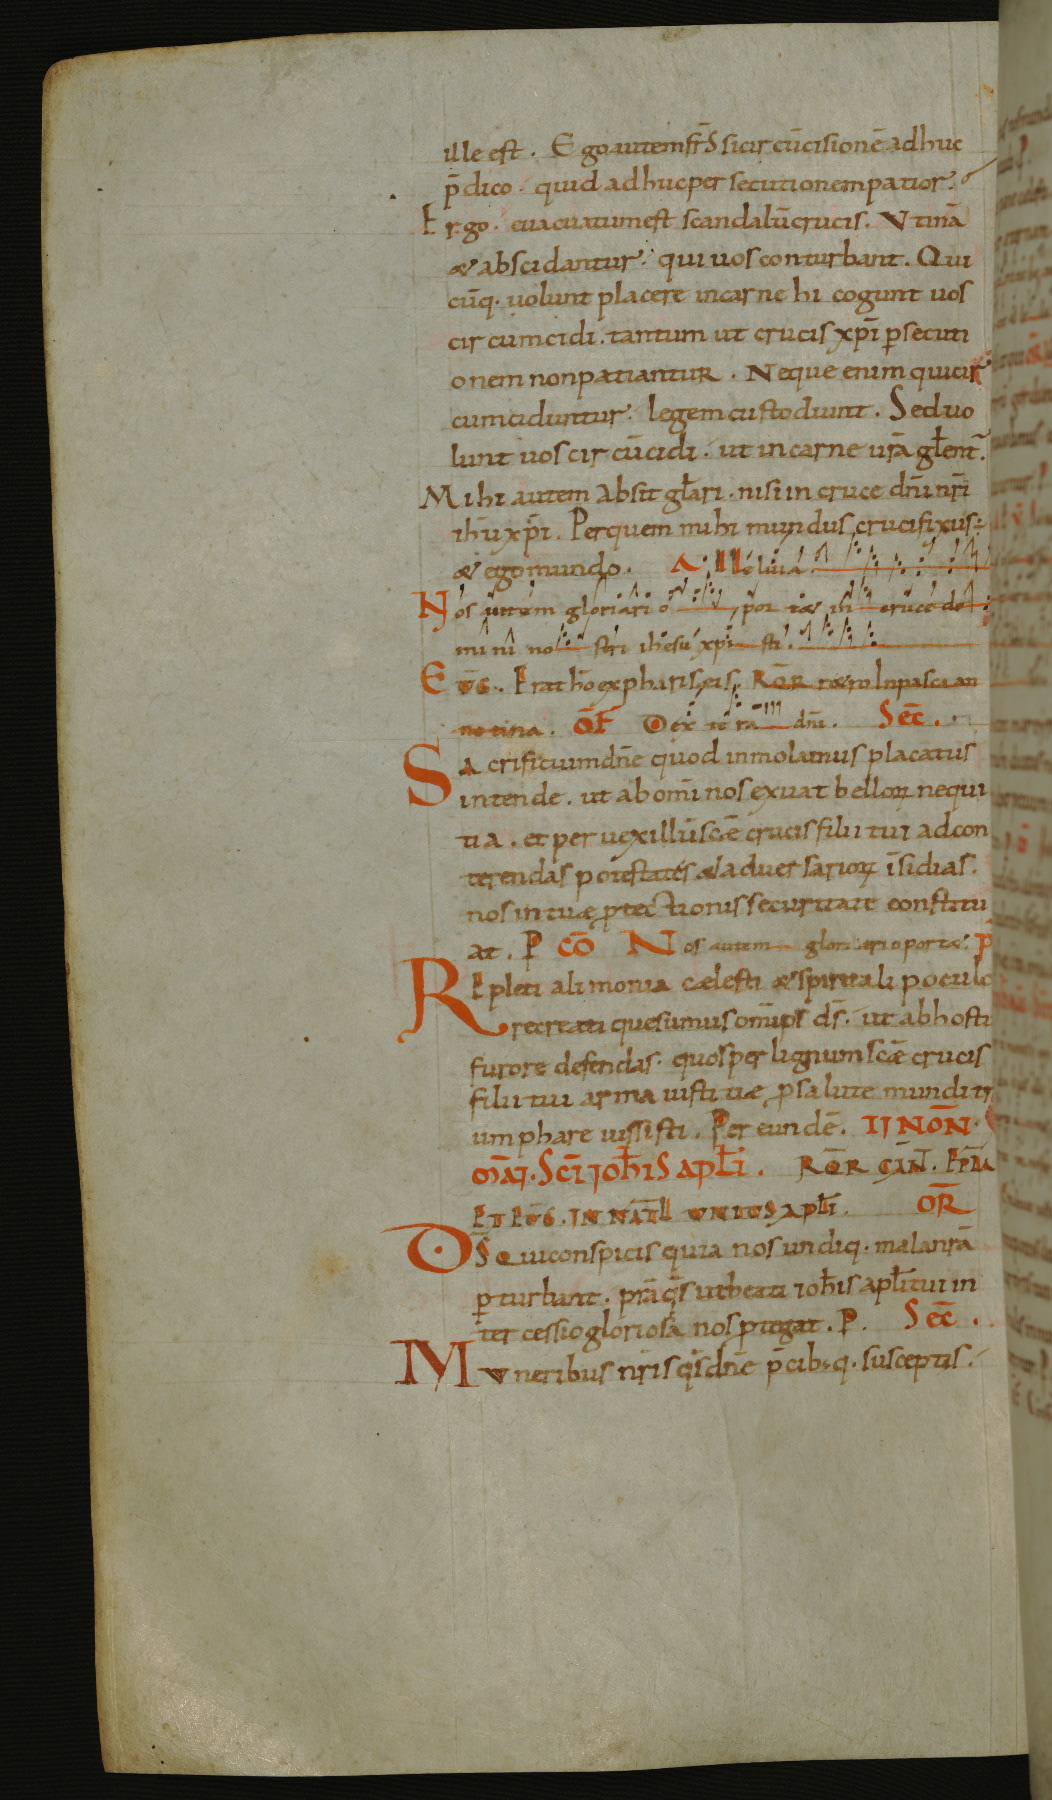 ille est. Ego autem frs̄ si circūcisionē adhuc
p̄dico. quid adhuc persecutionem patior.
Ergo euacuatum est scandalū crucis. Vtinā
& abscidantur. qui uos conturbant. Qui
cūq. uolunt placere in carne hi cogunt uos
circumcidi. tantum ut crucis xp̄i p̄secuti
onem non patiantur. Neque enim qui cir
cumciduntur. legem custodiunt. Sed uo
lunt uos circūcidi. ut in carne urā gl̄ent̄.
Mihi autem absit gl̄ari. nisi in cruce dn̄i nr̄i
ih̄u xp̄i. Per quem mihi mundus crucifixus
& ego mundo. Alleluia.
Nos autem gloriari o port& in cruce do
mini no stri ihesu xpi sti.
EVG. Erat hō ex phariseis. RQR r&ro in pascia an
notina. OF Dex te ra dn̄i. Sec̄.
Sacrificium dn̄e quod inmolamus placatus
intende. ut ab om̄i nos exuat bellorum nequi
tia. et per uexillū sc̄e crucis filii tui ad con
terendas potestates aduersariorum īsidias.
nos in tuæ ptectionis securitate constitu
at. P CŌ Nos autem gloriari oport&. P̄
Repleti alimonia cælesti & spiritali poculo
recreati quesumus om̄ps ds̄. ut ab hosti
furore defendas. quos per lignum scæ crucis
filii tui arma iustitiæ p salute mundi tr
iumphare iussisti. Per eundē. II NŌN.
MĀI. SC̄I IOH̄IS APL̄I. RQR
ET EVG. IN NAT̄L VNIVS APL̄I. OR̄
DS̄ Qui conspicis quia nos undiq. mala nr̄a
p̄turbant. pr̄a qs̄ ut beati ioh̄is apl̄i tui in
tercessio gloriosa nos ptegat. P. Sec̄.
Muneribus nr̄is qs̄ dn̄e p̄cib;q. susceptis.